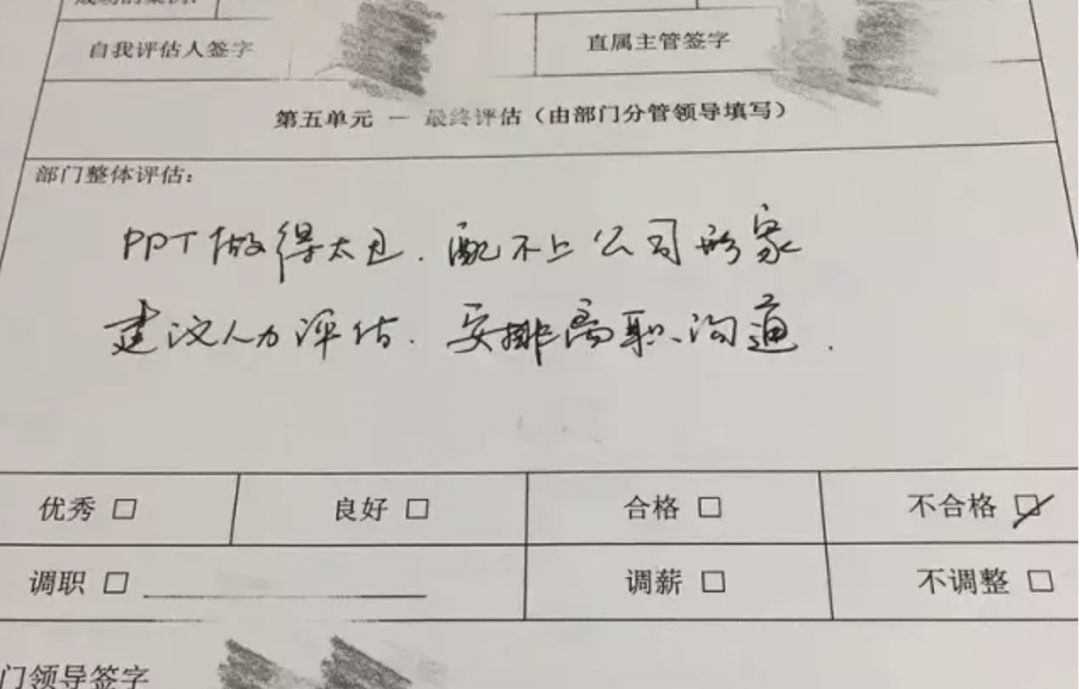 成功的案例:
自我评估人签字
直属主管签字
第五单元 — 最终评估（由部门分管领导填写）
部门整体评估：
PPT做得太丑．配不上公司形象
建议人力评估．安排离职沟通．
优秀 □ 良好 □ 合格 □ 不合格 ☑
调职 □ 调薪 □ 不调整 □
门领导签字